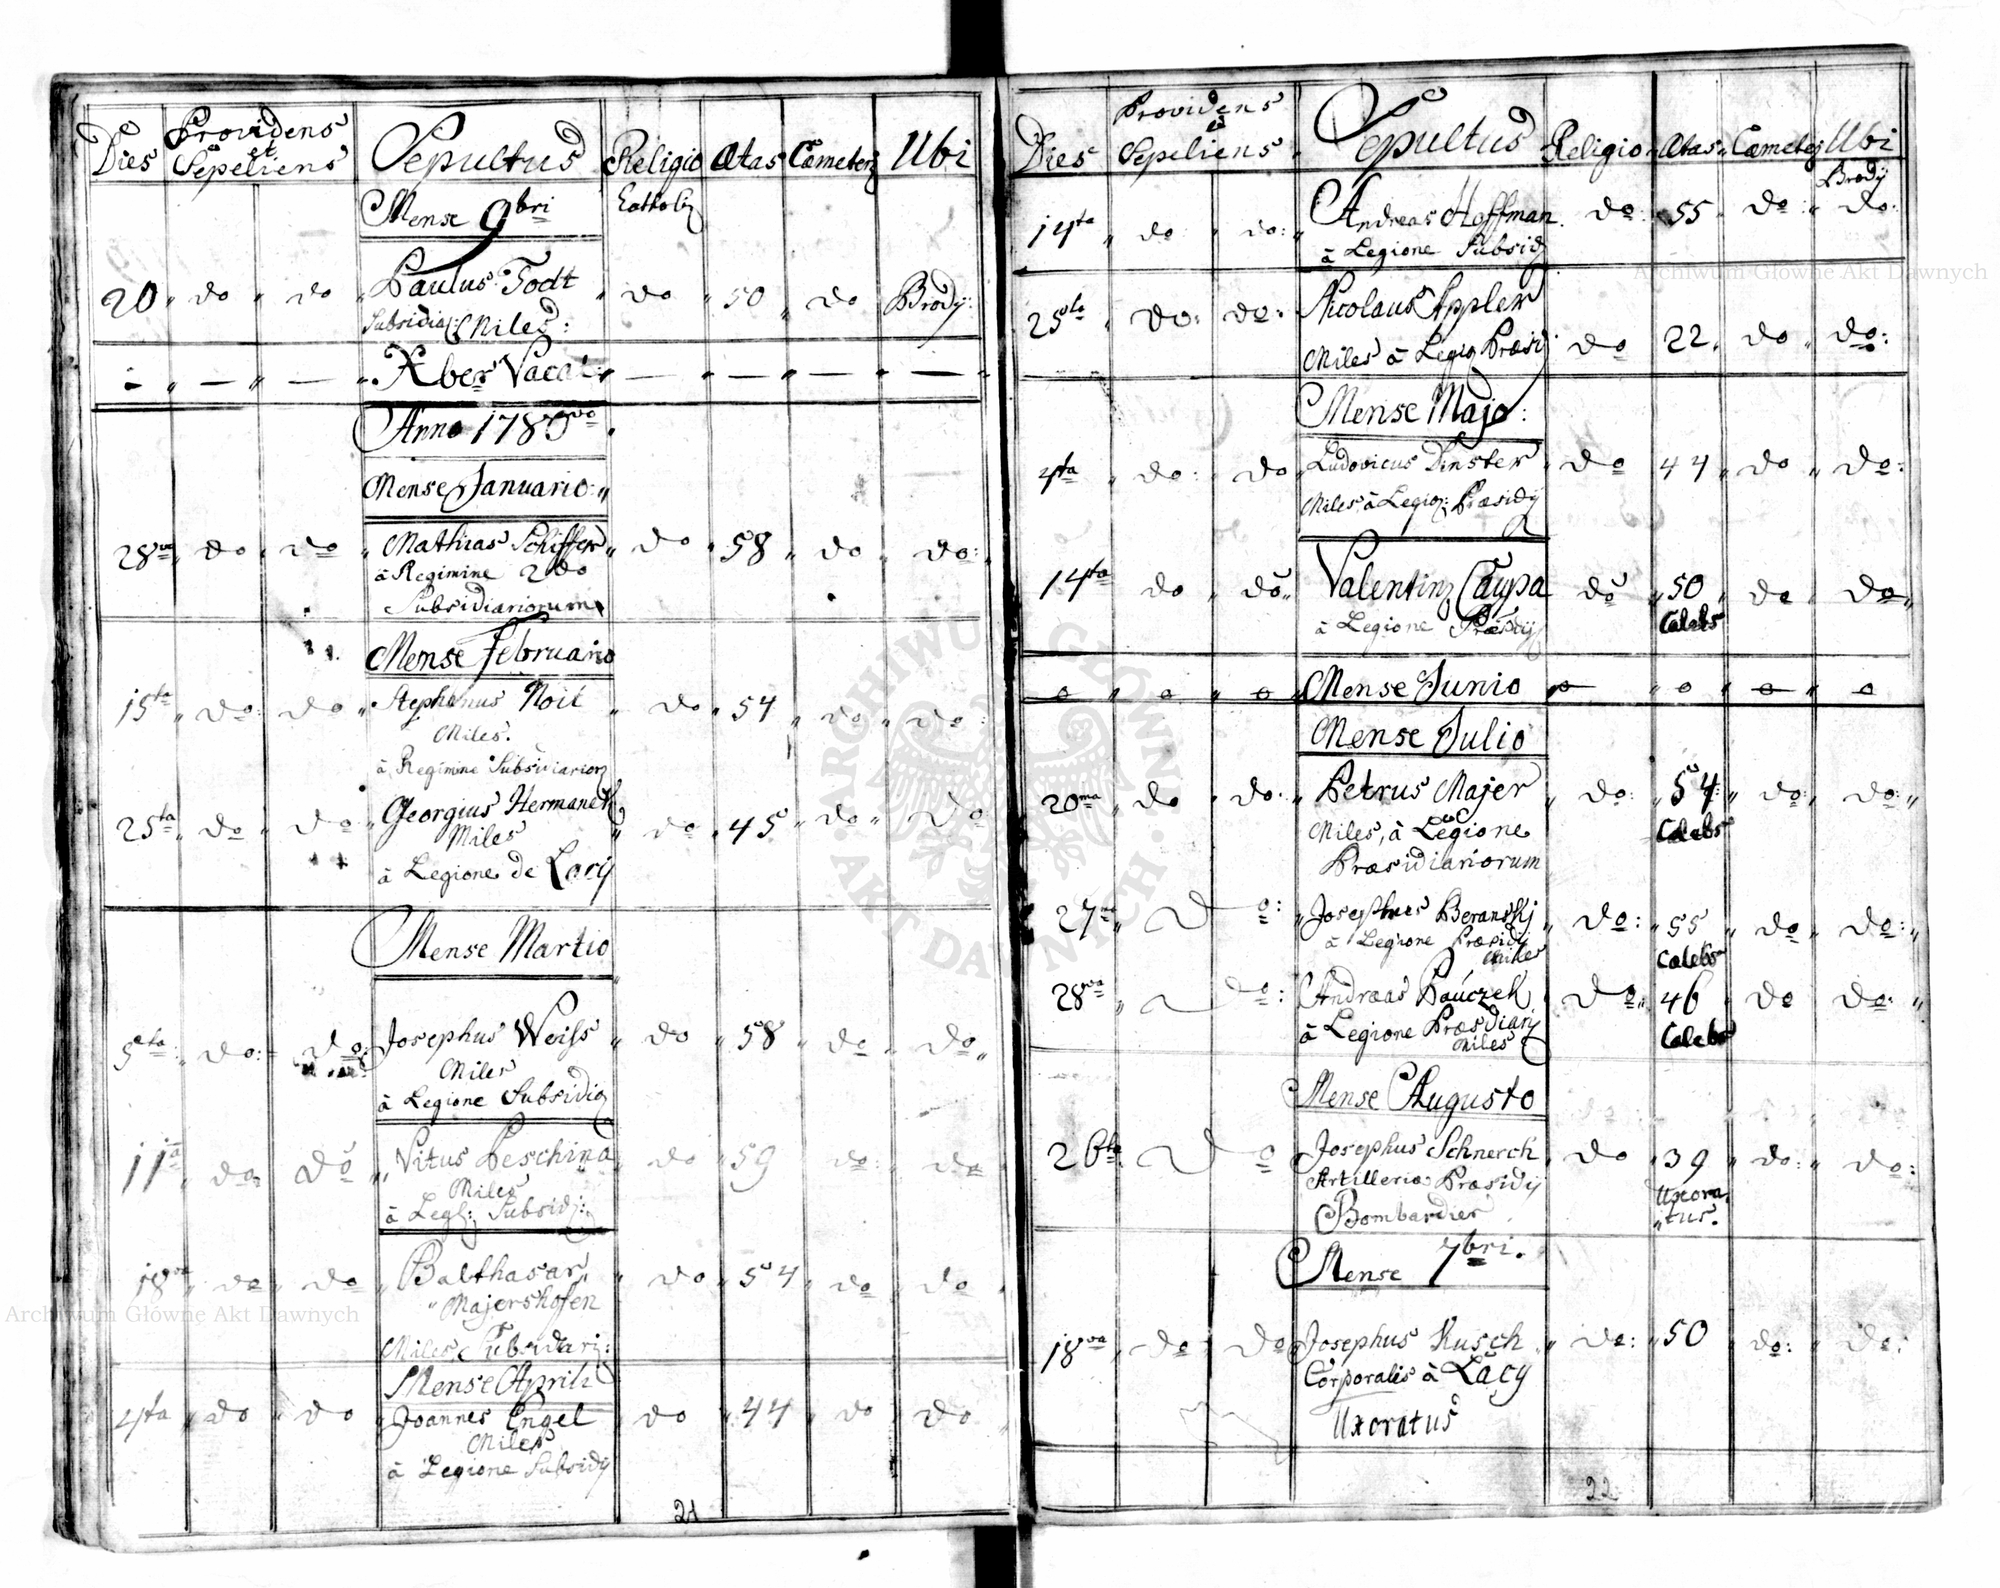 Dies Providens et Sepeliens Sepultus Religio Ætas Cæmeterÿ Ubi
Mense 9bri Catholi
20 " do " do " Paulus Todt " do " 50 " do Brodÿ:
Subsidia: Miles:
Xber Vacat
Anno 1780vo
Mense Januario
28va do " do " Mathias Schiffer " do " 58 " do " do:
à Regimine 2do
Subsidiariorum
Mense Februario
15ta " do: do " Stephanus Noil " do " 54 " do " do:
Miles.
à Regimine Subsidiarior
25ta " do " do " Georgius Hermaneck " do " 45 " do " do
Miles
à Legione de Lacÿ
Mense Martio
5ta " do: do Josephus Weiss " do " 58 " do " do "
Miles
à Legione Subsidia
11a " do: do " Vitus Peschina do 59 do: do
Miles
à Leg: Subsid:
18va do " do " Balthasar " do " 54 " do " do
Majershofen
Miles Subsidari:
Mense Aprili
4ta " do " do " Joannes Engel do " 44 " do " do
Miles
à Legione Subsidÿ
21
Dies Providens et Sepeliens Sepultus Religio Ætas Cæmeter Ubi
Brodÿ
14ta " do: " do: " Andreas Hoffman do: 55 do: do:
à Legione Subsid
25ta " do: do: Nicolaus Appler
Miles à Legio Præsi do 22. do " do:
Mense Majo:
4ta " do: do " Ludovicus Dinster " do 44 " do " do:
Miles à Legio: Præsidÿ
14ta do " do " Valentin Caypa do " 50 " do " do "
à Legione Præsidÿ Cælebs
o " o " o Mense Junio o " o " o " o
Mense Julio
20ma " do " do: " Petrus Majer " do: " 54 " do: " do: "
Miles, à Legione Cælebs
Præsidiariorum
27ma " do: " Josephus Beranskj " do: " 55 " do " do: "
à Legione Præsidÿ
Miles Cælebs
28va " do: Andræas Pauczek " do " 46 " do do: "
à Legione Præsidiarÿ
Miles Cælebs
Mense Augusto
26ta do Josephus Schnerch " do " 39 " do: " do:
Artilleriæ Præsidÿ Uxora
Bombardier "tus.
Mense 7bri.
18va " do " do Josephus Kusch " do: " 50 " do: " do:
Corporalis à Lacÿ
Uxoratus
22
Archiwum Główne Akt Dawnych
Archiwum Główne Akt Dawnych
ARCHIWUM GŁÓWNE · AKT DAWNYCH ·